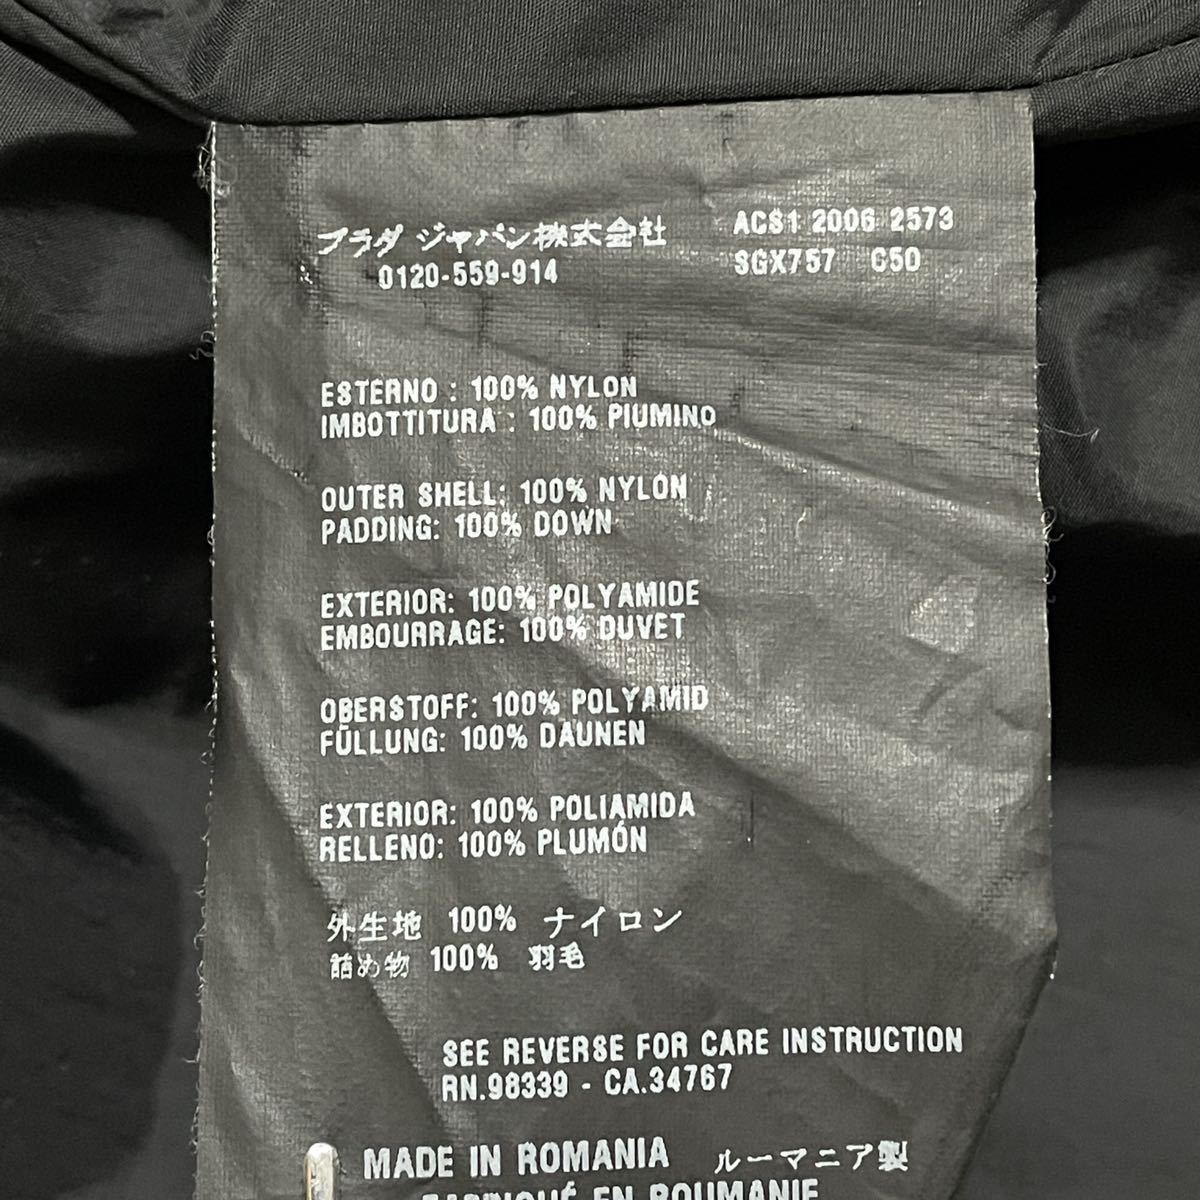 プラダ ジャパン株式会社
0120-559-914
ACS1 2006 2573
SGX757 G50
ESTERNO : 100% NYLON
IMBOTTITURA : 100% PIUMINO
OUTER SHELL: 100% NYLON
PADDING: 100% DOWN
EXTERIOR: 100% POLYAMIDE
EMBOURRAGE: 100% DUVET
OBERSTOFF: 100% POLYAMID
FÜLLUNG: 100% DAUNEN
EXTERIOR: 100% POLIAMIDA
RELLENO: 100% PLUMÓN
外生地 100% ナイロン
詰め物 100% 羽毛
SEE REVERSE FOR CARE INSTRUCTION
RN.98339 - CA.34767
MADE IN ROMANIA ルーマニア製
FABRIQUÉ EN ROUMANIE